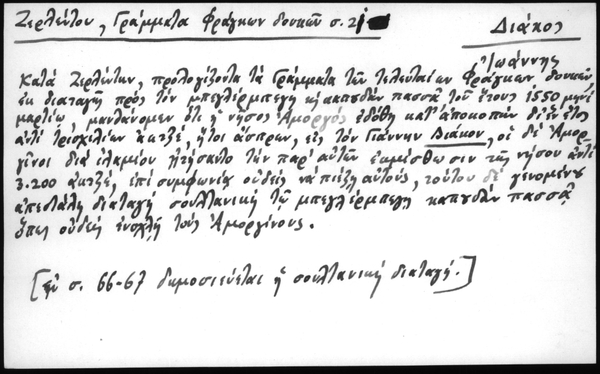 Ζερλέντου, Γράμματα Φράγκων δουκῶν σ. 21
Διάκος
Ἰωάννης
Κατά Ζερλέντων, προλογίζοντα τά Γράμματα τῶν τελευταίων Φράγκων δουκῶν,
ἐκ διαταγῆς πρός τόν μπεγλέρμπεγη κ̓ καπουδάν πασσᾶ τοῦ ἔτους 1550 μηνί
μαρτίῳ, μανθάνομεν ὅτι ἡ νῆσος Ἀμοργός ἐδόθη κατ' ἀποκοπήν δι' ἕν ἔτος
ἀντί τρισχιλίων ἀκτζέ, ἤτοι ἄσπρων, εἰς τόν Γιάννην Διάκον, οἱ δέ Ἀμορ-
γῖνοι διά ἐλαμίου ᾐτήσαντο τήν παρ' αὐτῶν ἐκμίσθωσιν τῆς νήσου ἀντί
3.200 ἀκτζέ, ἐπί συμφωνίᾳ οὐδείς νά πιέζῃ αὐτούς, τούτου δέ γενομένου
ἀπεστάλη διαταγή σουλτανική τῷ μπεγλέρμπεγῃ καπουδάν πασσᾷ
ὅπως οὐδείς ἐνοχλῇ τούς Ἀμοργίνους.
[ἐν σ. 66-67 δημοσιεύεται ἡ σουλτανική διαταγή.]